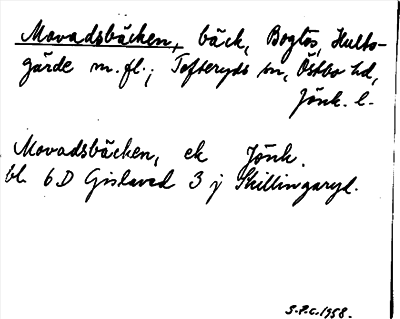 Movadsbäcken, bäck, Bogtös, Hults-
gärde m. fl.; Tofteryds sn, Östbo hd,
Jönk. l.
Movadsbäcken, ek Jönk.
bl. 6D Gislaved 3 j Skillingaryd.
S.P.C. 1958.